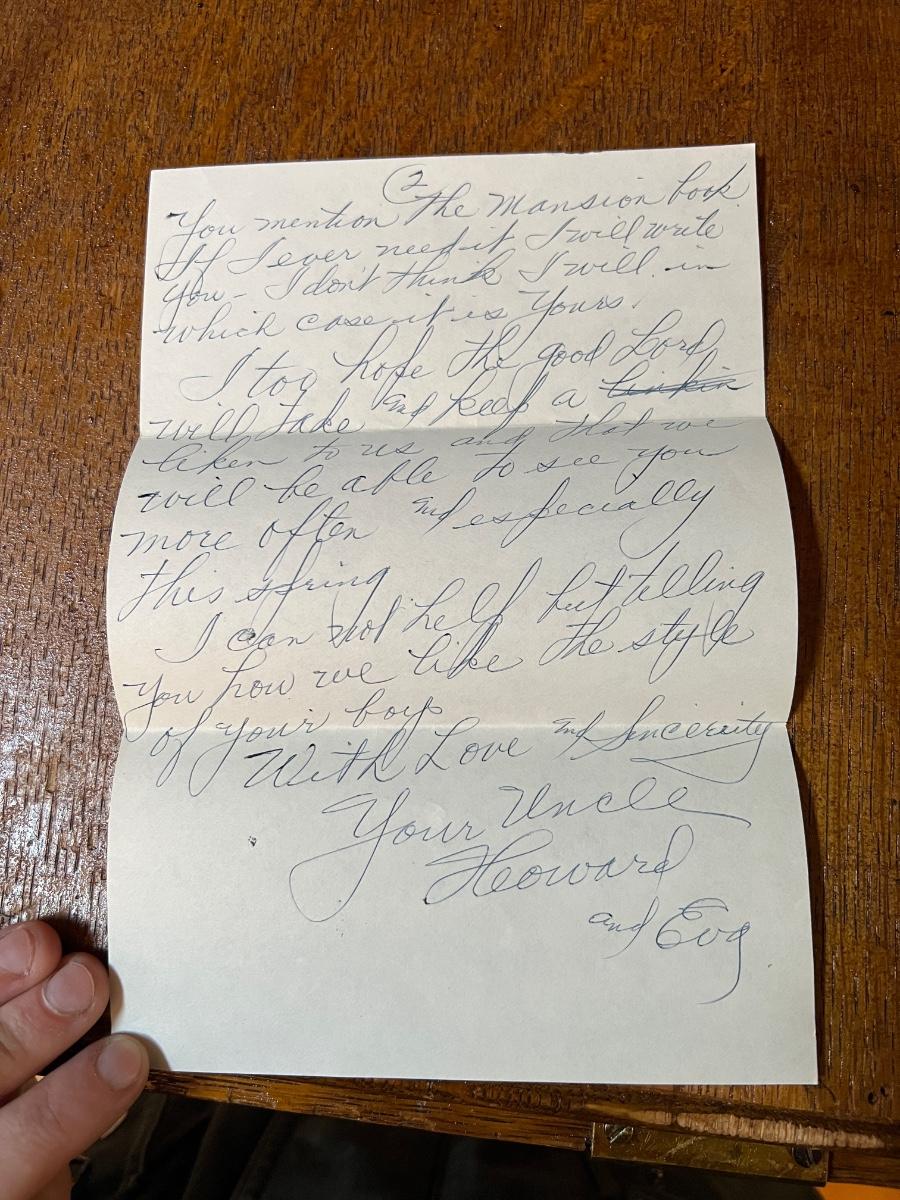 (2
You mention the Mansion book
If I ever need it, I will write
you - I don't think I will in
which case it is Yours.
I too hope the good Lord
will take and keep a
liken to us and that we
will be able to see you
more often and especially
this spring
I can not help but telling
you how we like the style
of your boys
With Love and Sincerity
Your Uncle
Howard
and Eva